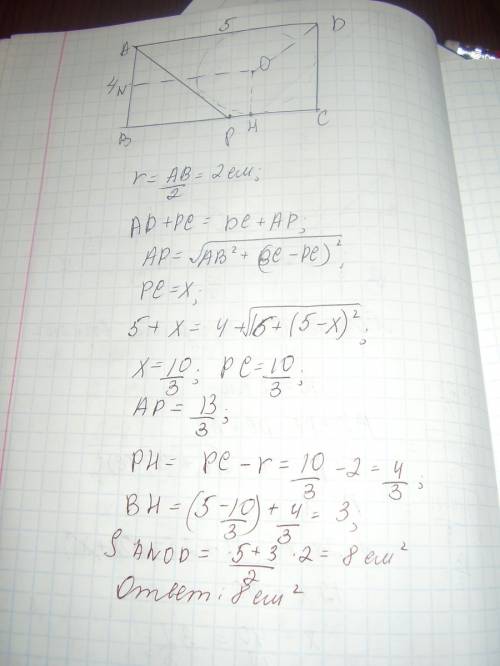 5
A D
4 N O
B P H C
r = AB/2 = 2 см;
AD + PC = DC + AP;
AP = √(AB² + (BC − PC)²),
PC = x;
5 + x = 4 + √(16 + (5 − x)²);
x = 10/3; PC = 10/3;
AP = 13/3;
PH = PC − r = 10/3 − 2 = 4/3;
BH = (5 − 10/3) + 4/3 = 3;
S ANOD = (5 + 3)/2 · 2 = 8 см²
Ответ: 8 см²